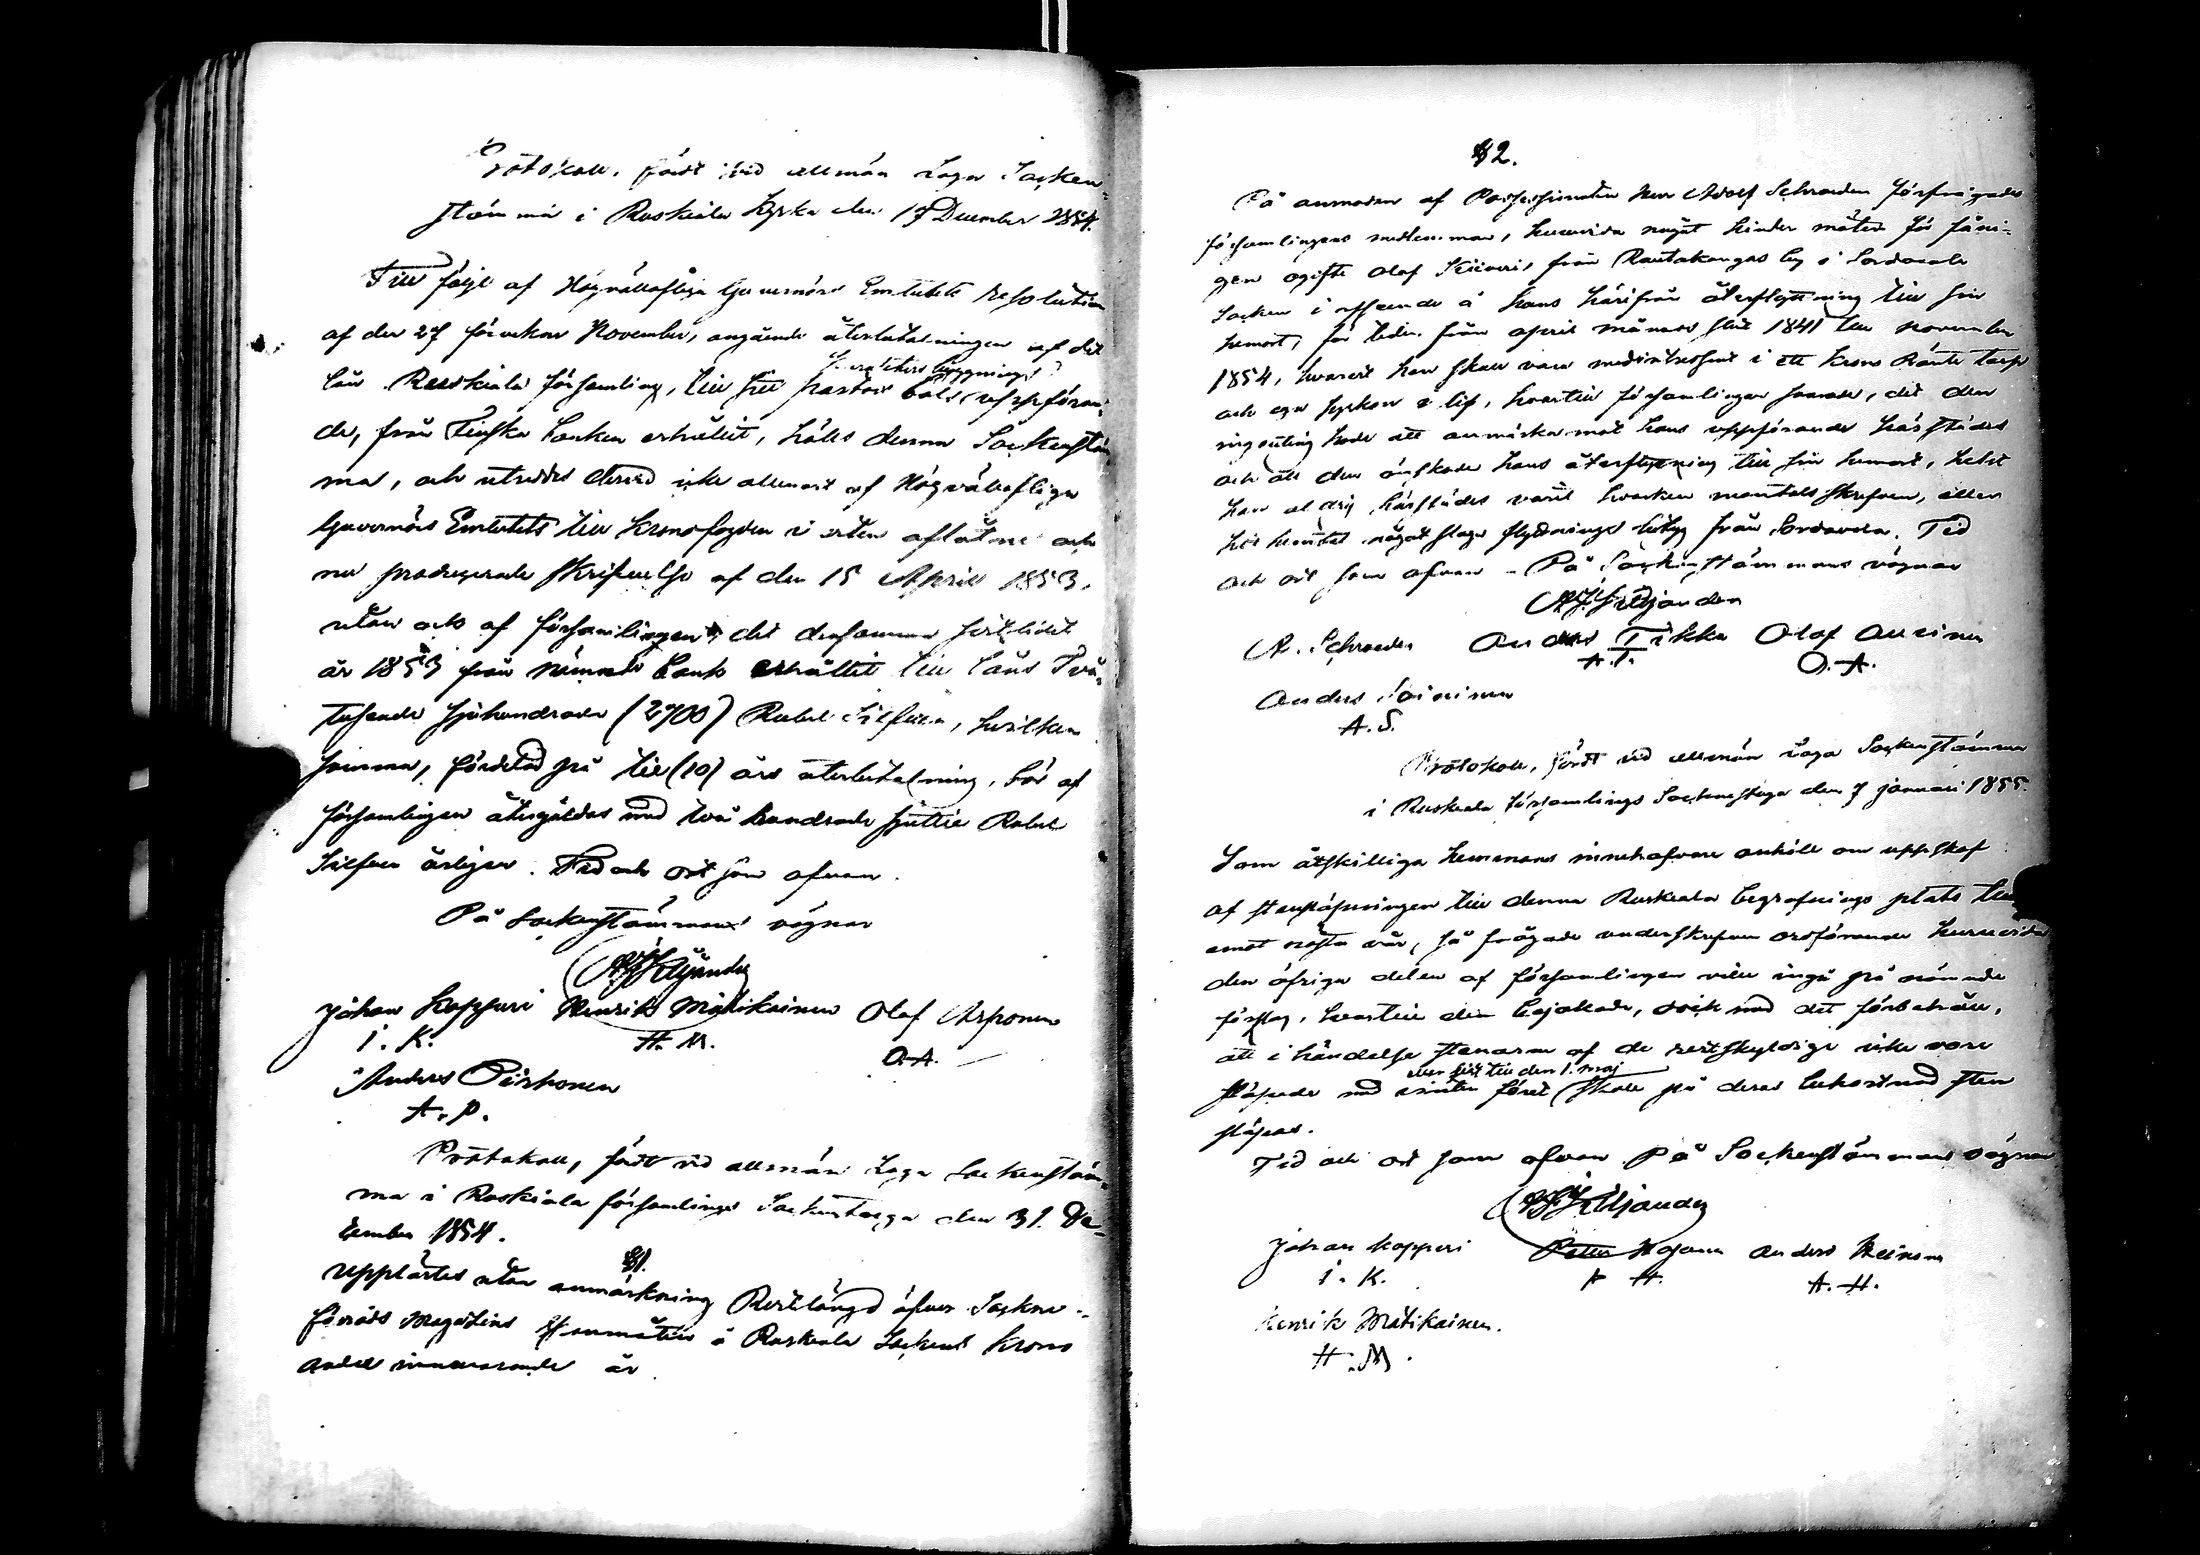 Protokoll, fördt vid allmän Laga Socken-
stämma i Ruskiala Kyrka den 17 December 1854.
Till följe af Högvällofliga Guvernörs Embetets resolution
af den 27 förvekne November, angående återbetalningen af det
lån Ruskiala församling, till sitt pastors bols uppföran-
Caracters byggnings
de, från Finska banken erhållit, hölls denna Sockenstäm-
ma, och utreddes dervid icke allenast af Högvällofliga
Guvernörs Embetets till Kronofogden i orten aflåtne och
nu producerade skrifvelse af den 15 April 1853,
utan ock af församlingen, det densamma sistlidet
år 1853 från nämnde bank erhållit till låns Två-
tusende sjuhundrade (2700) Rubel Silfver, hvilken
summa, fördelad på tie (10) års återbetalning, bör af
församlingen återgäldas med två hundrade sjuttie Rubel
Silfver årligen. Tid och ort som ofvan.
På Sockenstämmans vägnar
Johan Kopperi Henrik Matikainen Olaf Arponen
I. K. H. M. O. A.
Anders Piirhonen
A. P.
Protokoll, fördt vid allmän Laga Sockenstäm-
ma i Ruskiala församlings Sockenstuga den 31 De-
cember 1854.
§1.
Upplästes utan anmärkning Restlängd öfver Socken-
förråds Magasins å Ruskeala Sockens Krono
andel innevarande år.
§2.
På anmodan af Possessionaten Herr Adolf Schroeder förfrågades
församlingens medlemmar, huruvida något hinder möter för
ogifte Olaf från Rautakangas by i Sordavala
Socken i afseende å hans härifrån återflyttning till sin
hemort, för tiden från april månads slut 1841 till november
1854, hvarest han skall vara medintressent i ett Krono Ränte Torp
och ega syskon i lif, hvartill församlingen svarade, det den
ingenting hade att anmärka mot hans uppförande härstädes
och att den önskade hans återflyttning till sin hemort, helst
han aldrig härstädes varit hvarken mantalsskrifven, eller
hit hemtat något slags flyttnings betyg från Sordavala. Tid
och ort som ofvan - På Sockenstämmans vägnar
A. Schroeder Anders Tikka Olaf
A. T. O. A.
Anders Soininen
A. S.
Protokoll, fördt vid allmän Laga Sockenstämma
i Ruskeala församlings Sockenstuga den 7 januari 1855.
Som åtskilliga hemmans innehafvare anhöllo om uppskof
af stensläpningen till denna Ruskeala begrafnings plats till
emot nästa vår, så frågade underskrefven ordförande huruvida
den öfriga delen af församlingen ville ingå på nämnde
förslag, hvartill den bejakade, dock med det förbehåll,
att i händelse stenarne af de restskyldige icke vore
eller sist till den 1. maj
släpade med vinter föret skall på deras bekostnad sten
släpas.
Tid och ort som ofvan På Sockenstämmans vägnar
Johan Kopperi Petter Anders
I. K. P H. A. H.
Henrik Matikainen.
H. M.